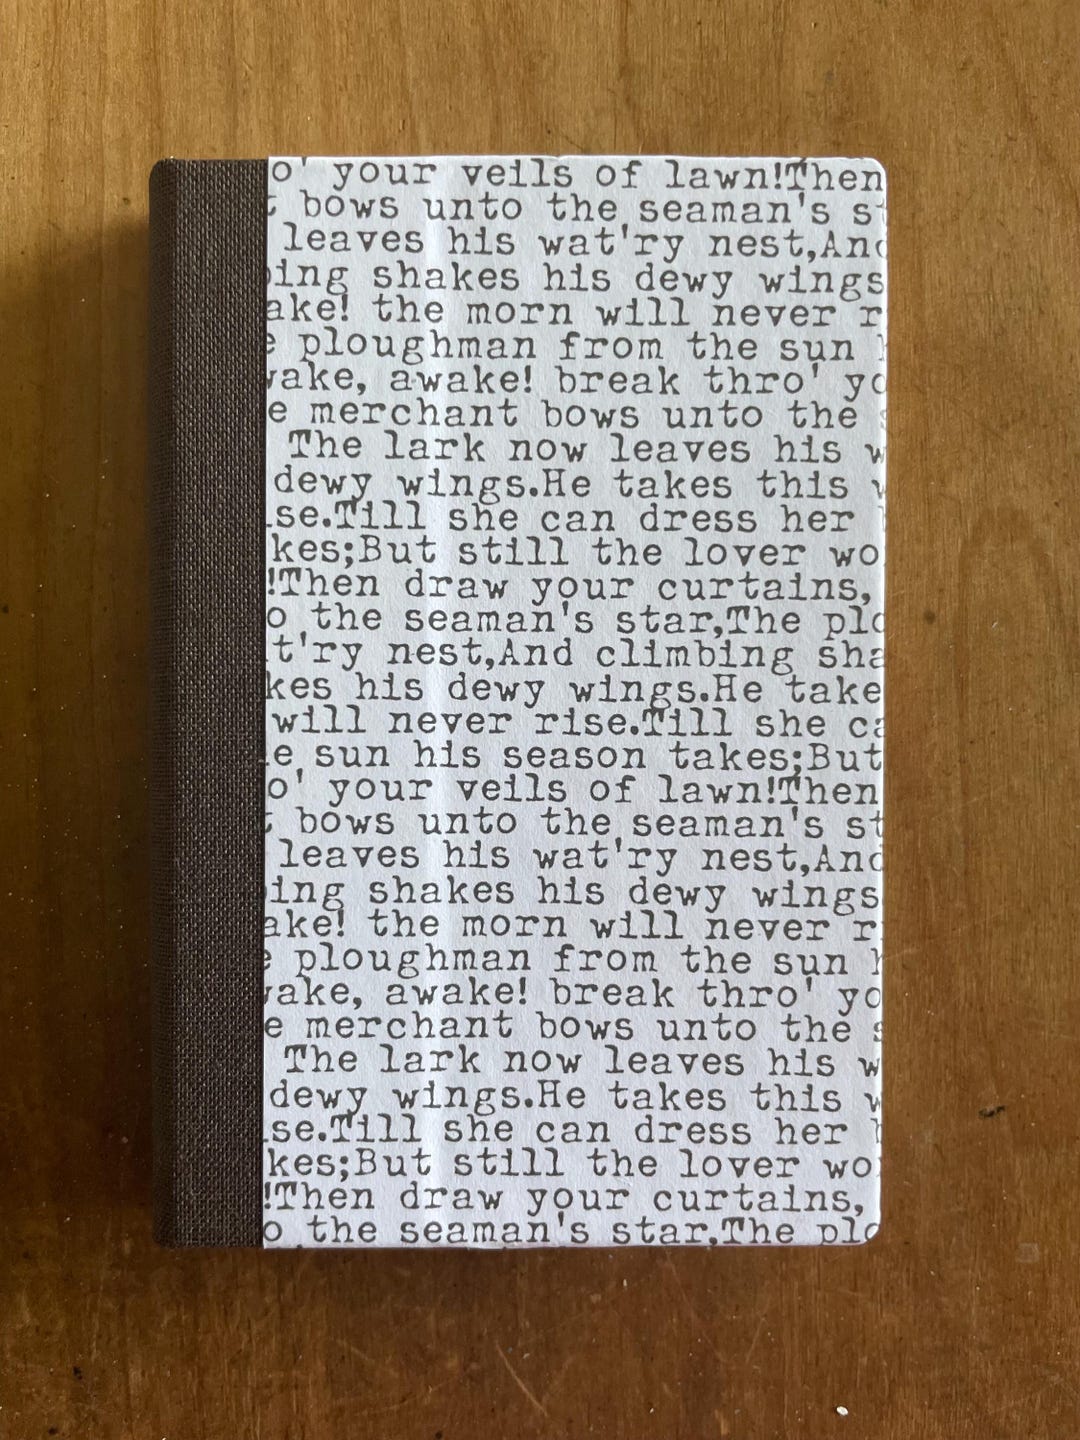 o' your veils of lawn!Then
bows unto the seaman's st
leaves his wat'ry nest,And
ing shakes his dewy wings
ake! the morn will never r
ploughman from the sun
ake, awake! break thro' yo
e merchant bows unto the
The lark now leaves his w
dewy wings.He takes this
se.Till she can dress her
kes;But still the lover wo
!Then draw your curtains,
o the seaman's star,The plo
t'ry nest,And climbing sha
kes his dewy wings.He take
will never rise.Till she ca
e sun his season takes;But
o' your veils of lawn!Then
bows unto the seaman's st
leaves his wat'ry nest,And
ing shakes his dewy wings
ake! the morn will never r
ploughman from the sun
ake, awake! break thro' yo
e merchant bows unto the s
The lark now leaves his w
dewy wings.He takes this
se.Till she can dress her
kes;But still the lover wo
!Then draw your curtains,
o the seaman's star,The plo